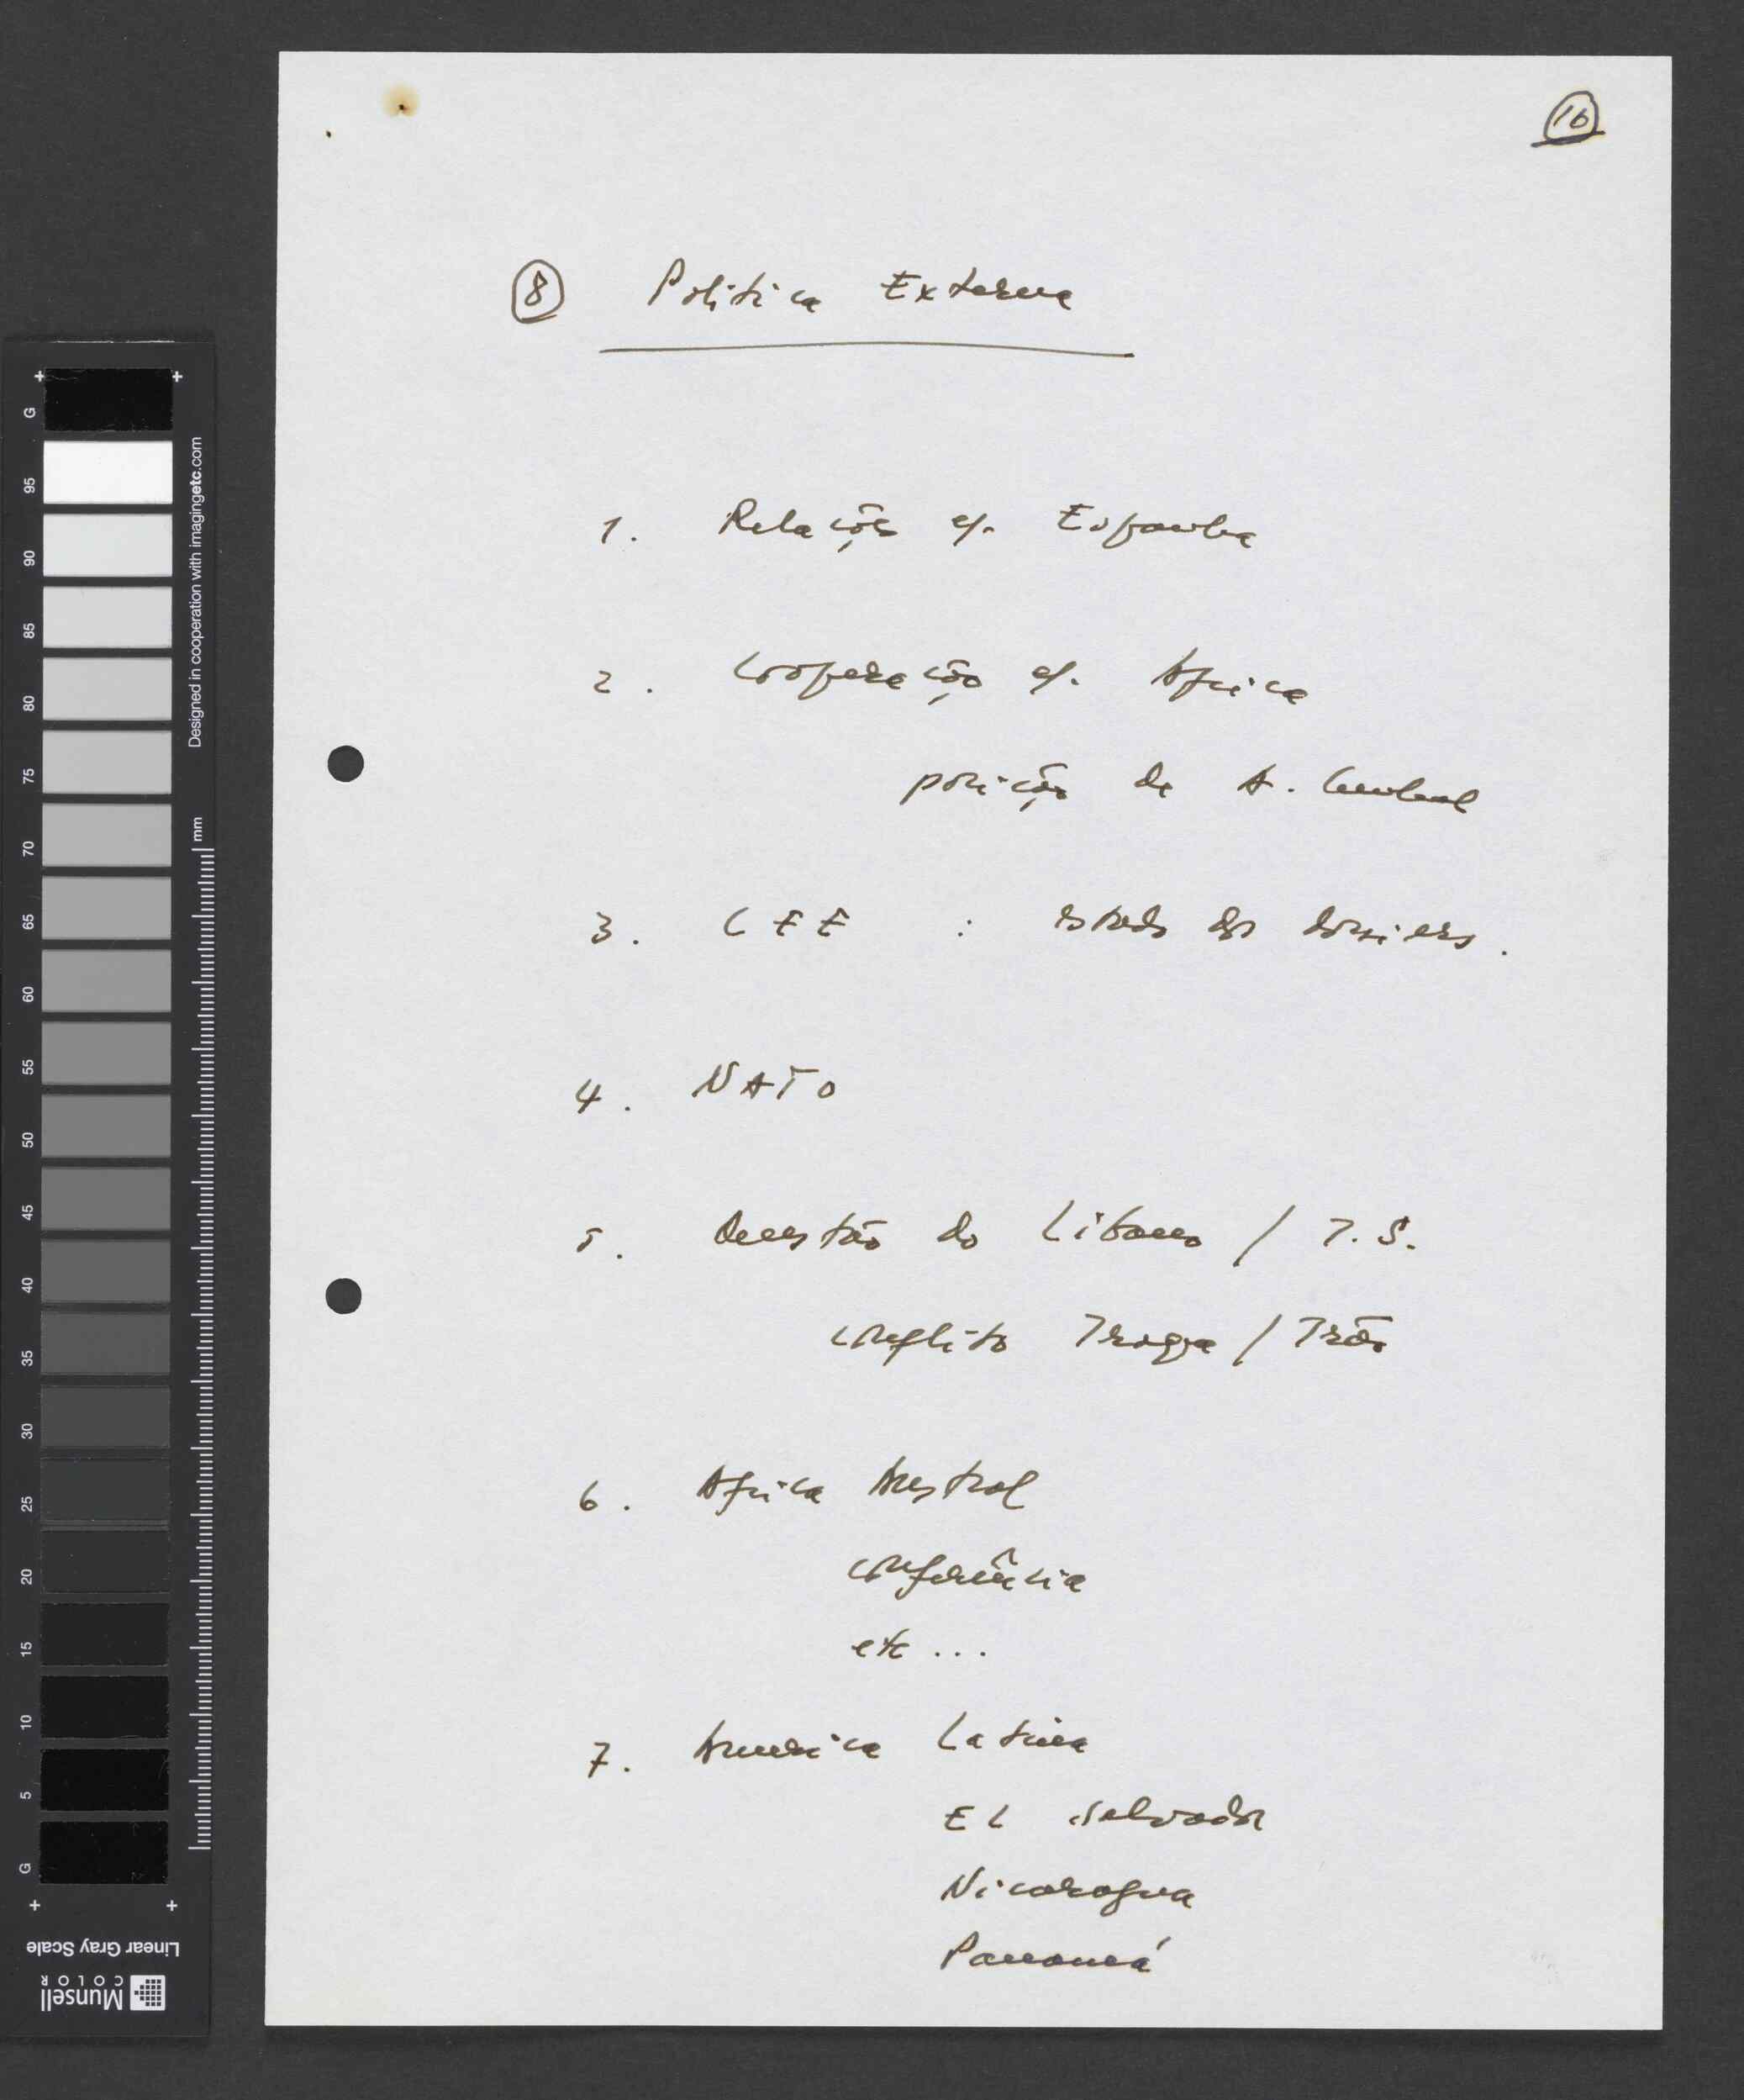 16
8 Politica Externa
1. Relações c/. Espanha
2. Cooperação c/. Africa
posição de A. Cunhal
3. CEE : estado dos dossiers.
4. NATO
5. Questão do Libano / I.S.
conflito Iraque / Irão
6. Africa Austral
conferência
etc ...
7. America Latina
El Salvador
Nicaragua
Panamá
G
95
90
85
80
75
70
65
60
55
50
45
40
35
30
25
20
15
10
5
G
Designed in cooperation with imagingetc.com
mm
Linear Gray Scale
Munsell
COLOR